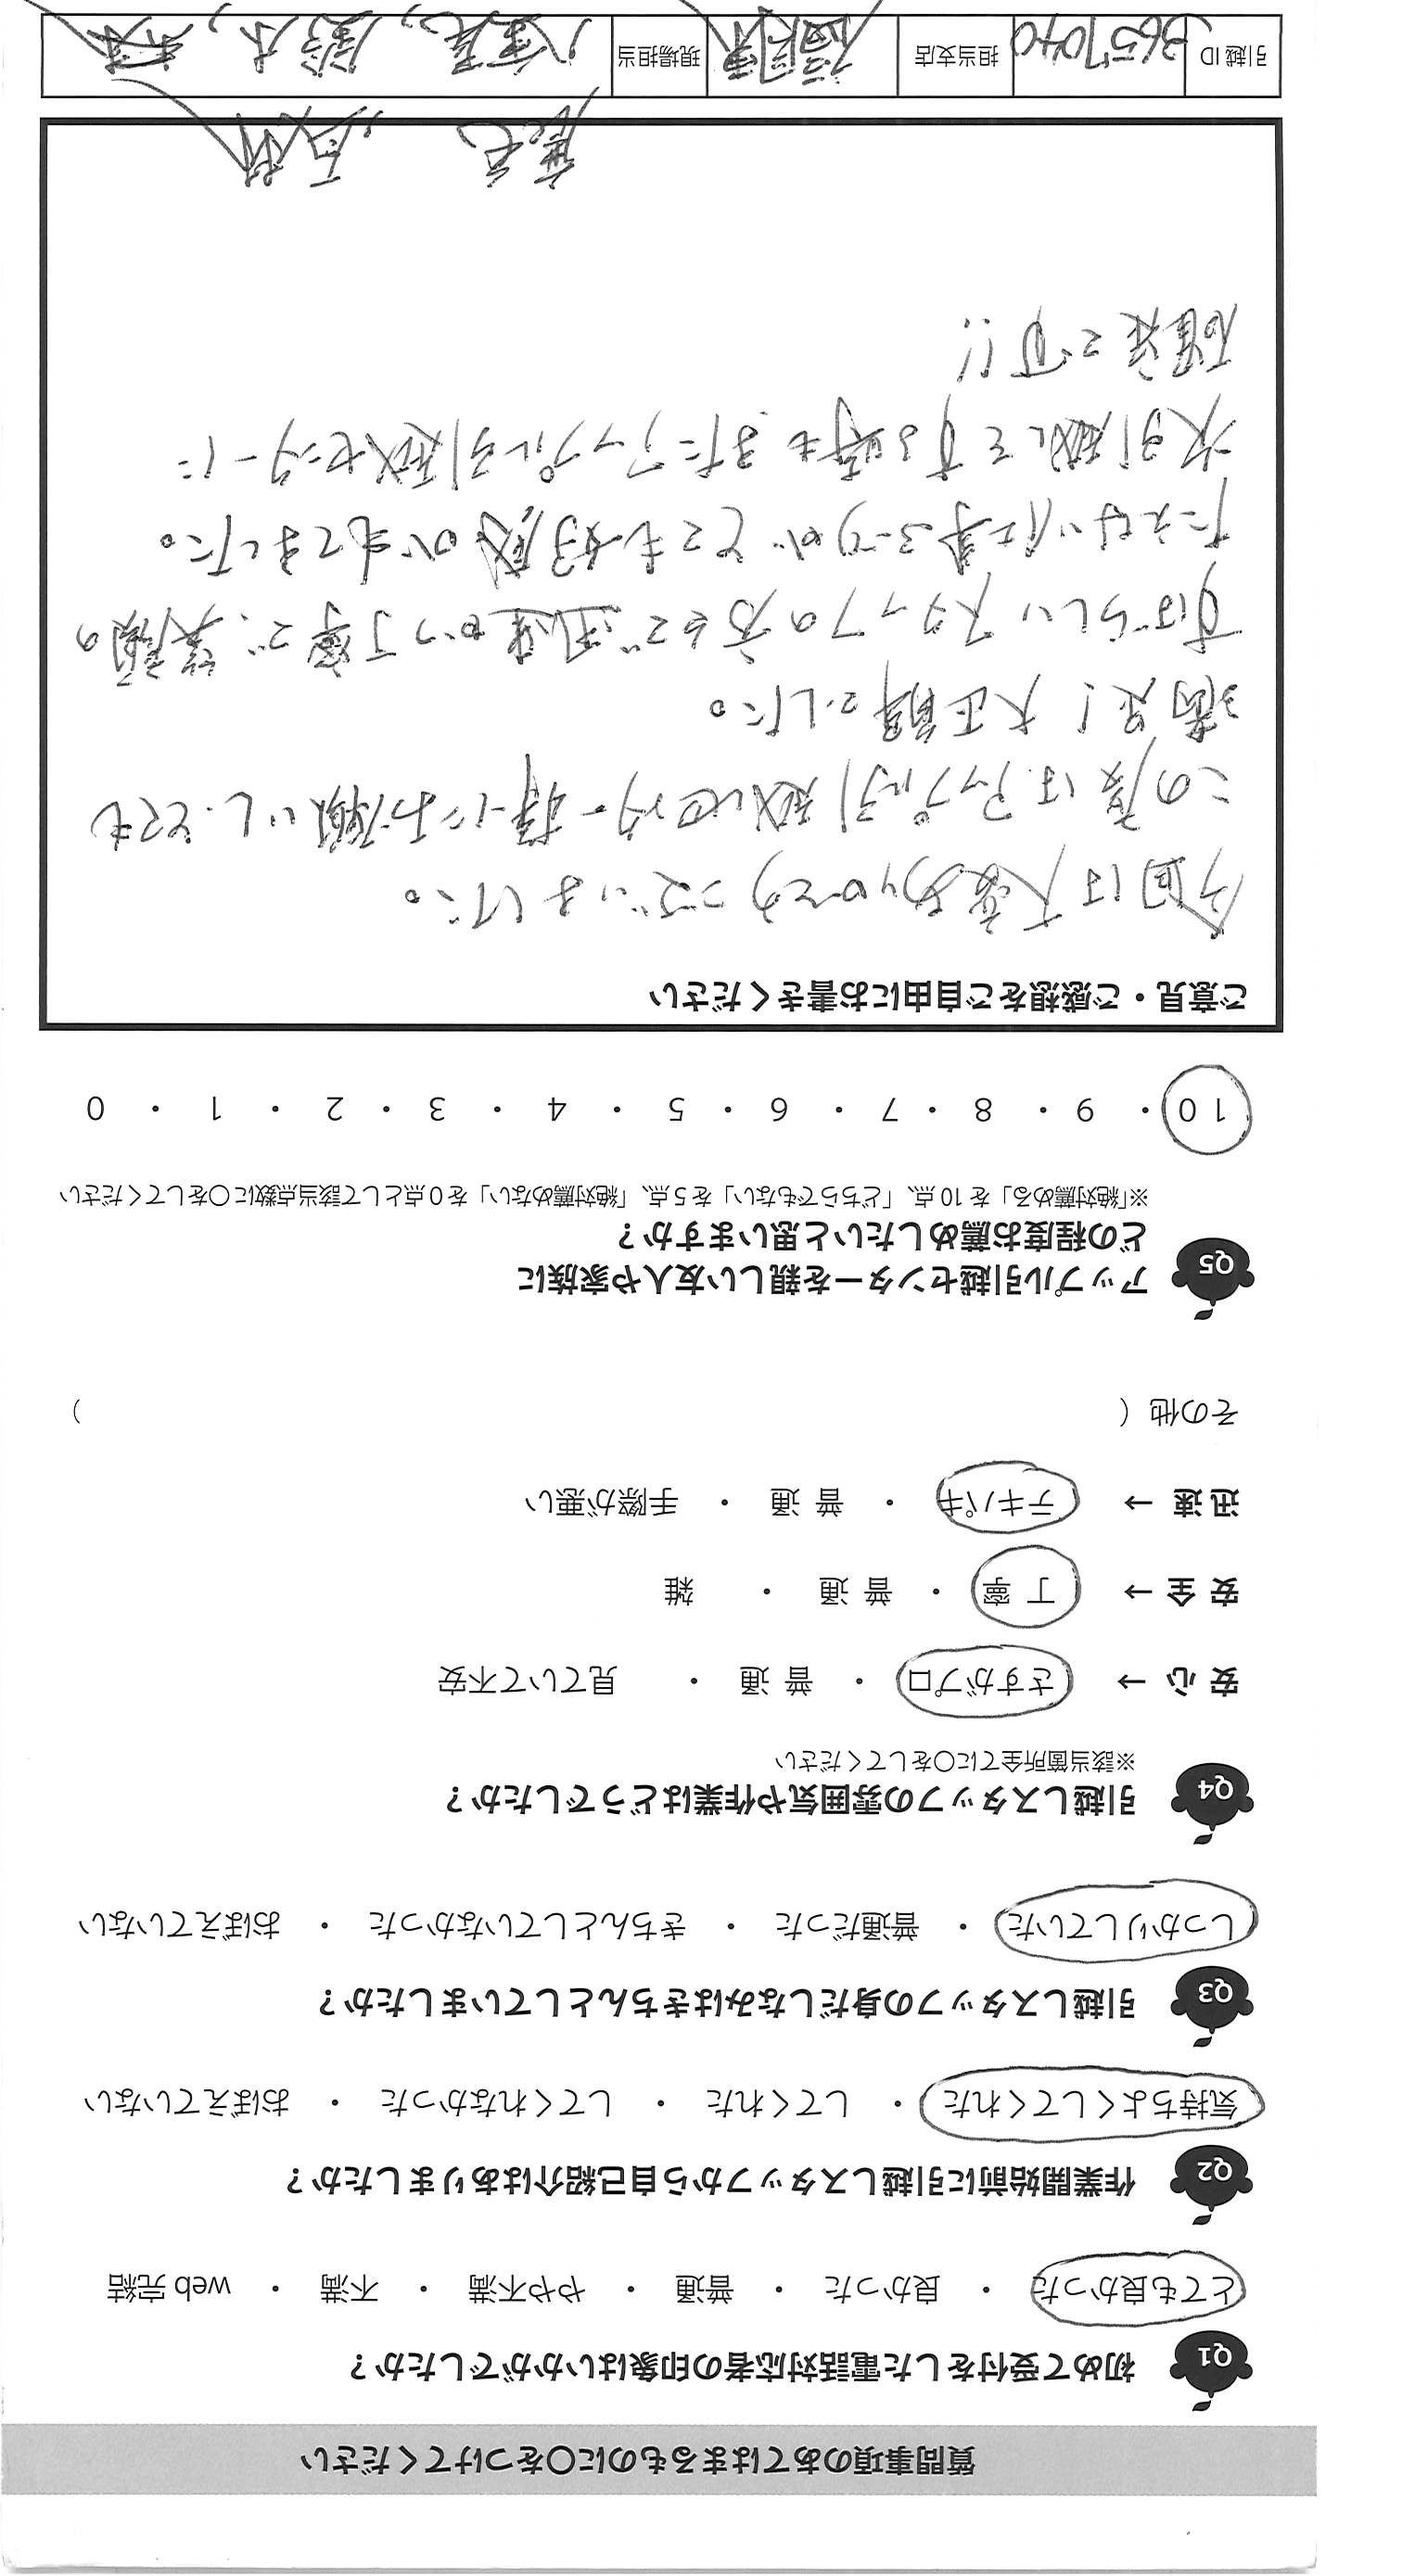 質問事項のあてはまるものに○をつけてください
Q1 初めて受付をした電話対応者の印象はいかがでしたか？
とても良かった ・ 良かった ・ 普通 ・ やや不満 ・ 不満 ・ web 完結
Q2 作業開始前に引越しスタッフから自己紹介はありましたか？
気持ちよくしてくれた ・ してくれた ・ してくれなかった ・ おぼえていない
Q3 引越しスタッフの身だしなみはきちんとしていましたか？
しっかりしていた ・ 普通だった ・ きちんとしていなかった ・ おぼえていない
Q4 引越しスタッフの雰囲気や作業はどうでしたか？
※該当箇所全てに○をしてください
安 心 → さすがプロ ・ 普 通 ・ 見ていて不安
安 全 → 丁 寧 ・ 普 通 ・ 雑
迅 速 → テキパキ ・ 普 通 ・ 手際が悪い
その他（ ）
Q5 アップル引越センターを親しい友人や家族に
どの程度お薦めしたいと思いますか？
※「絶対薦める」を 10 点、「どちらでもない」を 5 点、「絶対薦めない」を 0 点として該当点数に○をしてください
10 ・ 9 ・ 8 ・ 7 ・ 6 ・ 5 ・ 4 ・ 3 ・ 2 ・ 1 ・ 0
ご意見・ご感想をご自由にお書きください
今回は大変ありがとうございました。
この度はアップル引越しセンター様にお願いし、とても
満足！大正解でした。
すばらしいスタッフの方々で迅速かつ丁寧で、笑顔の
たえない仕事ぶりがとても好感が持てました。
次引越しをする時もまたアップル引越センターに
確定です!!
引越 ID 3657040 担当支店 現場担当 八重尾, 鈴木,